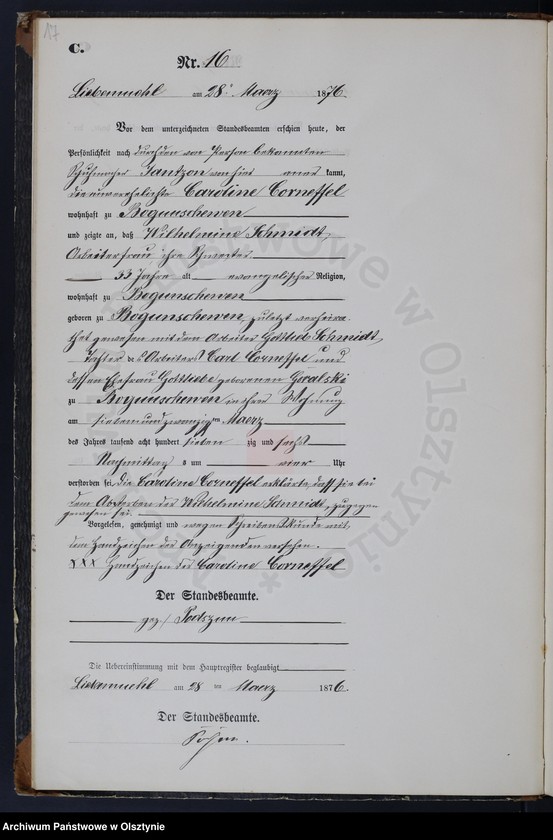 17
C.
Nr. 16
Liebemuehl am 28t Maerz 1876
Vor dem unterzeichneten Standesbeamten erschien heute, der
Persönlichkeit nach durch den von Person bekannten
Schuhmacher Jantzon von hier aner kannt,
die unverehelichte Caroline Corneffel
wohnhaft zu Bogunschewen
und zeigte an, daß Wilhelmine Schmidt,
Arbeiterfrau ihre Schwester
33 Jahre alt evangelischer Religion,
wohnhaft zu Bogunschewen
geboren zu Bogunschewen, zuletzt verheira
thet gewesen mit dem Arbeiter Gottlieb Schmidt,
Tochter des Arbeiters Carl Corneffel und
dessen Ehefrau Gottliebe geborenen Goralski
zu Bogunschewen in ihrer Wohnung
am siebenundzwanzigten Maerz
des Jahres tausend acht hundert sieben zig und sechs
Nachmittag s um vier Uhr
verstorben sei. Die Caroline Corneffel erklärte, daß sie bei
dem Absterben der Wilhelmine Schmidt, zugegen
gewesen sei.
Vorgelesen, genehmigt und wegen Schreibensunkunde mit
dem Handzeichen der Anzeigenden versehen.
XXX Handzeichen der Caroline Corneffel
Der Standesbeamte.
gez.
Die Uebereinstimmung mit dem Hauptregister beglaubigt
Liebemuehl am 28 ten Maerz 1876.
Der Standesbeamte.
Archiwum Państwowe w Olsztynie